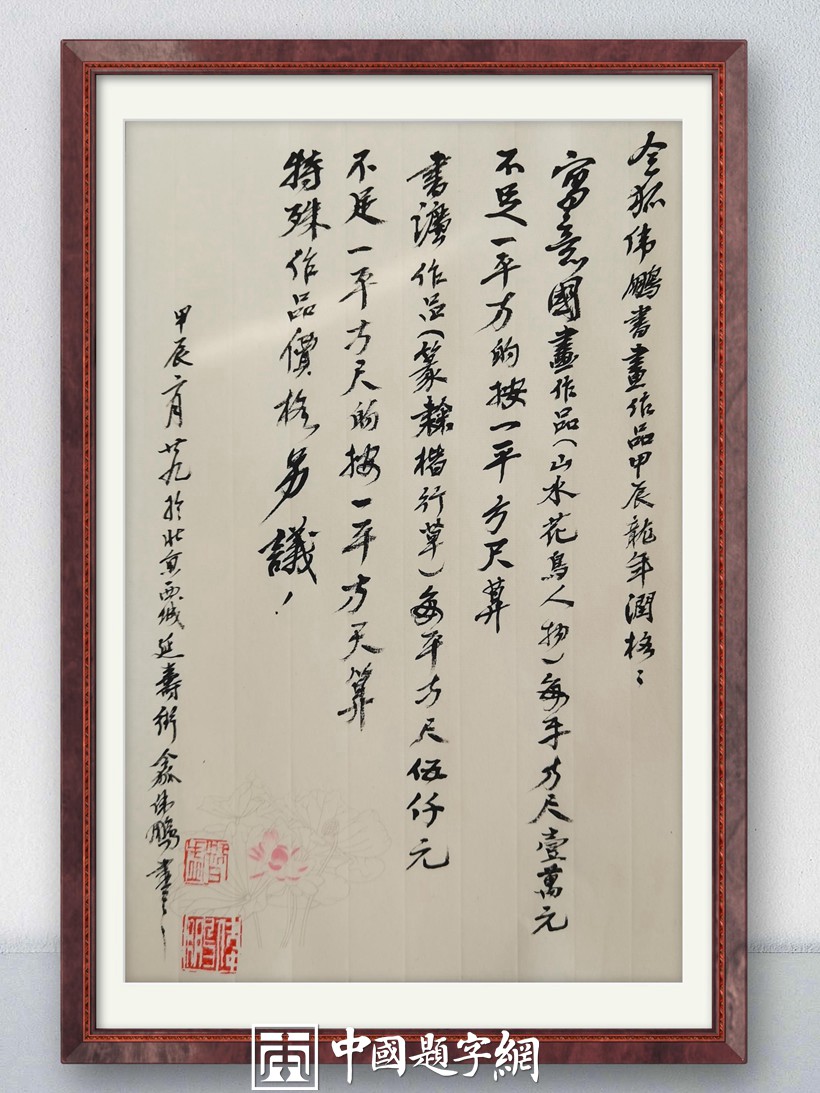 令狐伟鵬書畫作品甲辰龍年潤格：
寫意國畫作品（山水花鳥人物）每平方尺壹萬元
不足一平方的按一平方尺算
書灋作品（篆隸楷行草）每平方尺伍仟元
不足一平方尺的按一平方尺算
特殊作品價格另議！
甲辰二月廿九於北京西城延壽街 伟鵬書
中國題字網